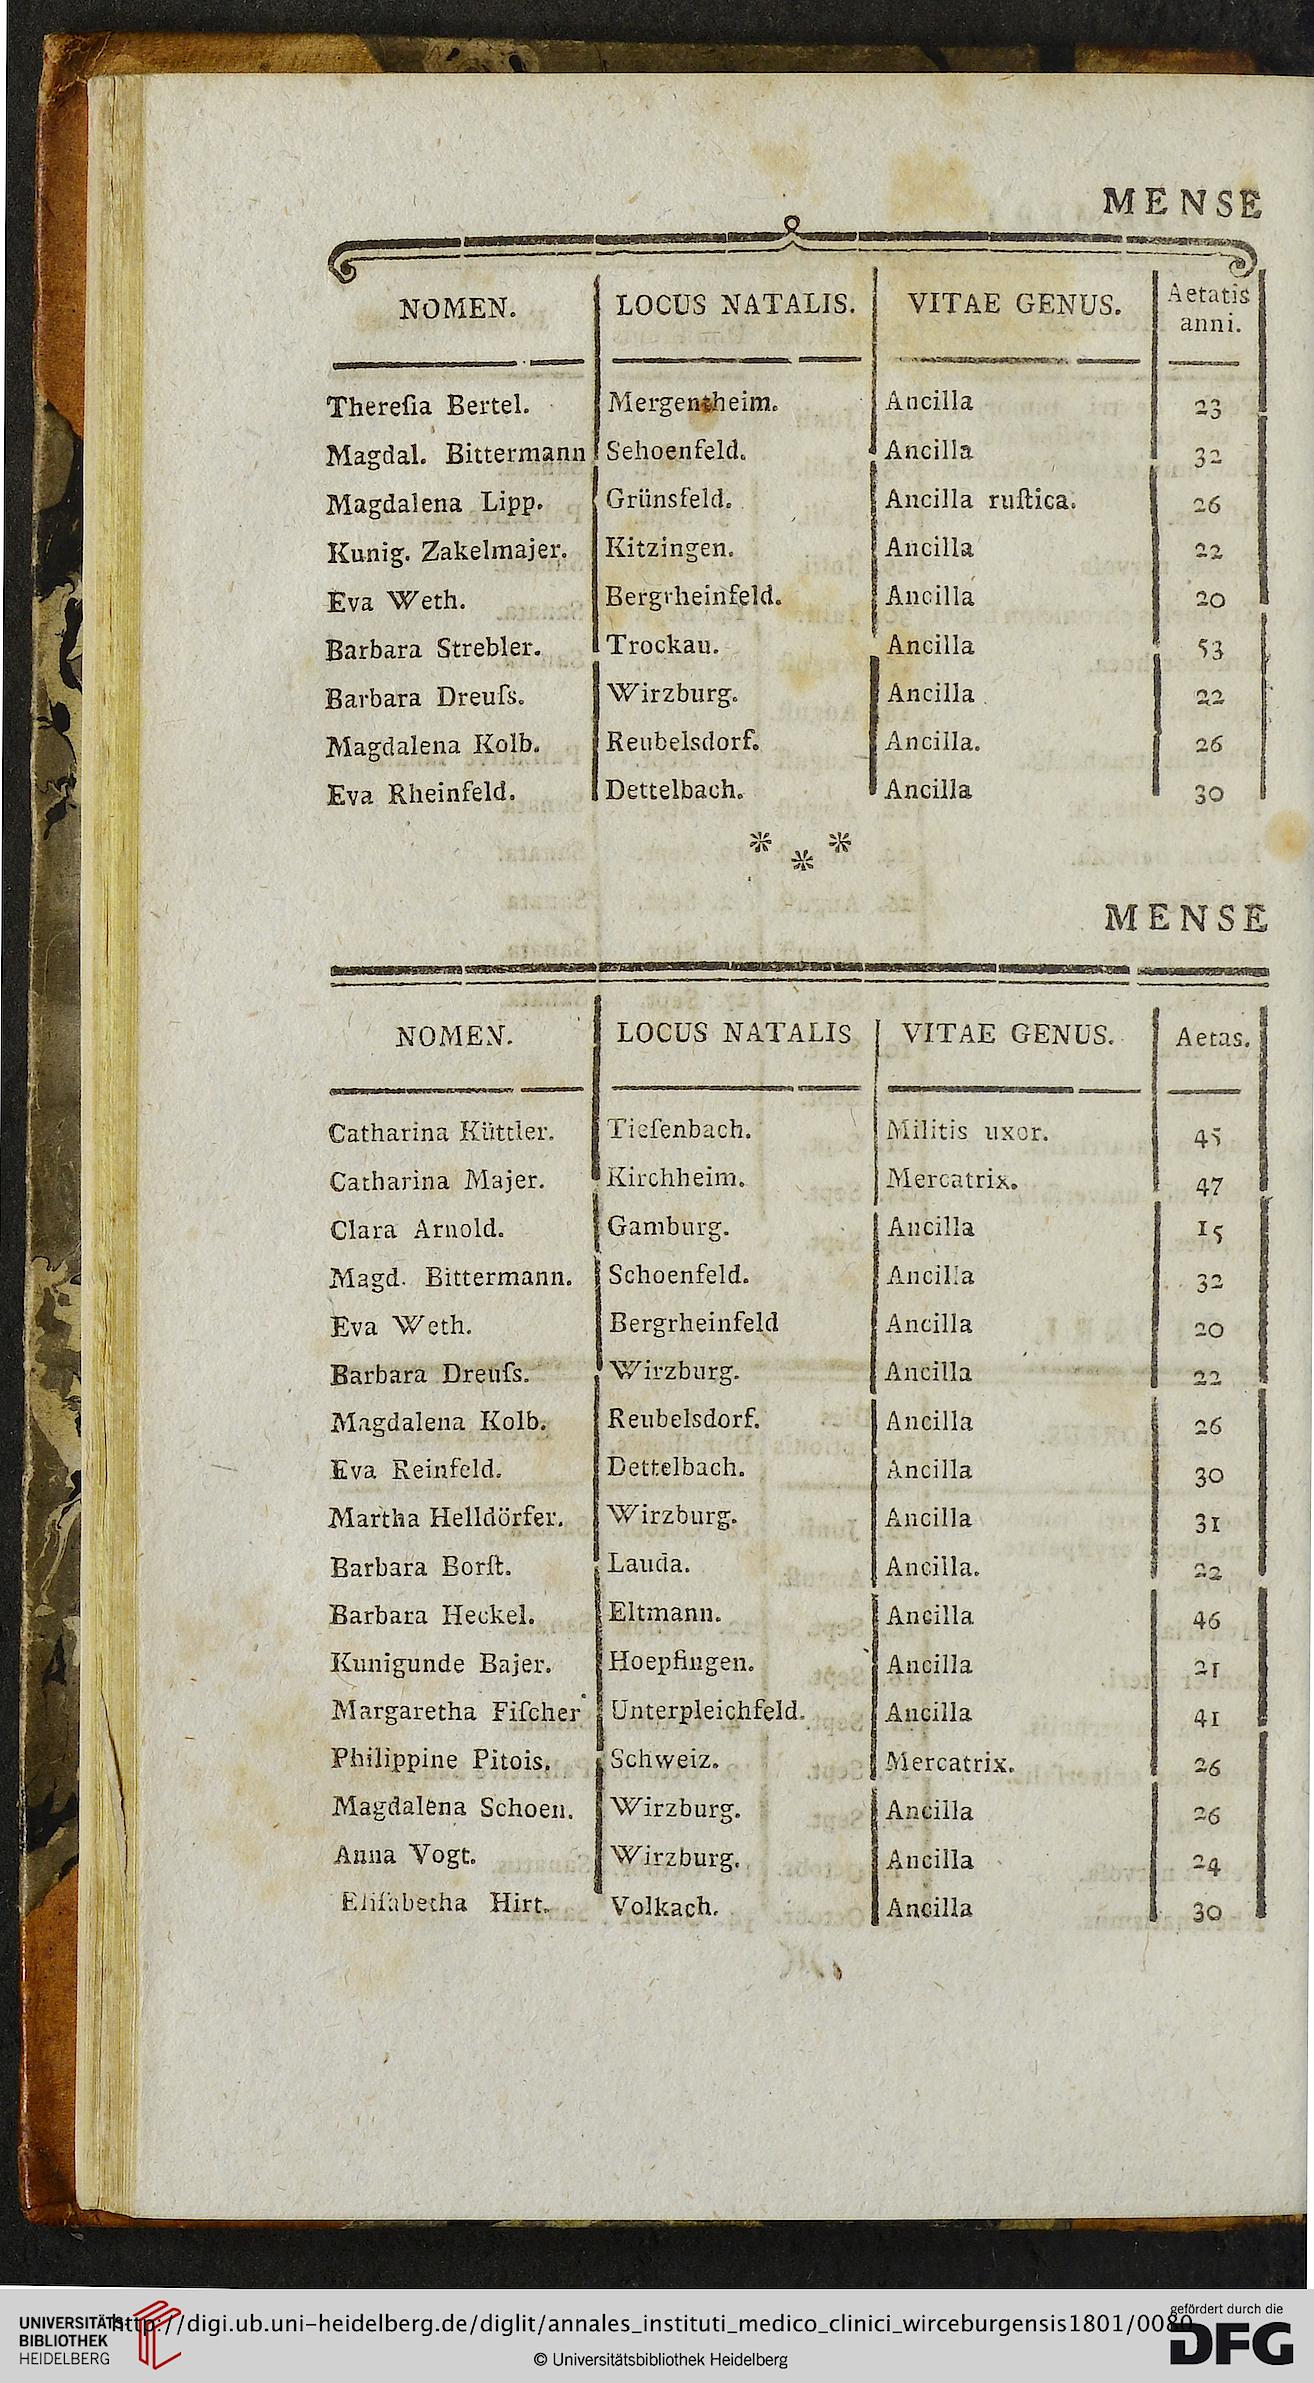 MENSE
NOMEN. LOCUS NATALIS. VITAE GENUS. Aetatis anni.
Thereſia Bertel. Mergentheim. Ancilla 23
Magdal. Bittermann Sehoenfeld. Ancilla 32
Magdalena Lipp. Grünsfeld. Ancilla ruſtica. 26
Kunig. Zakelmajer. Kitzingen. Ancilla 22
Eva Weth. Bergrheinfeld. Ancilla 20
Barbara Strebler. Trockau. Ancilla 53
Barbara Dreuſs. Wirzburg. Ancilla 22
Magdalena Kolb. Reubelsdorf. Ancilla. 26
Eva Rheinfeld. Dettelbach. Ancilla 30
* * *
MENSE
NOMEN. LOCUS NATALIS VITAE GENUS. Aetas.
Catharina Küttler. Tiefenbach. Militis uxor. 45
Catharina Majer. Kirchheim. Mercatrix. 47
Clara Arnold. Gamburg. Ancilla 15
Magd. Bittermann. Schoenfeld. Ancilla 32
Eva Weth. Bergrheinfeld Ancilla 20
Barbara Dreuſs. Wirzburg. Ancilla 22
Magdalena Kolb. Reubelsdorf. Ancilla 26
Eva Reinfeld. Dettelbach. Ancilla 30
Martha Helldörfer. Wirzburg. Ancilla 31
Barbara Borſt. Lauda. Ancilla. 22
Barbara Heckel. Eltmann. Ancilla 46
Kunigunde Bajer. Hoepfingen. Ancilla 21
Margaretha Fiſcher Unterpleichfeld. Ancilla 41
Philippine Pitois. Schweiz. Mercatrix. 26
Magdalena Schoen. Wirzburg. Ancilla 26
Anna Vogt. Wirzburg. Ancilla 24
Eliſabetha Hirt. Volkach. Ancilla 30
UNIVERSITÄTS-
BIBLIOTHEK
HEIDELBERG
http://digi.ub.uni-heidelberg.de/diglit/annales_instituti_medico_clinici_wirceburgensis1801/0080
© Universitätsbibliothek Heidelberg
gefördert durch die
DFG